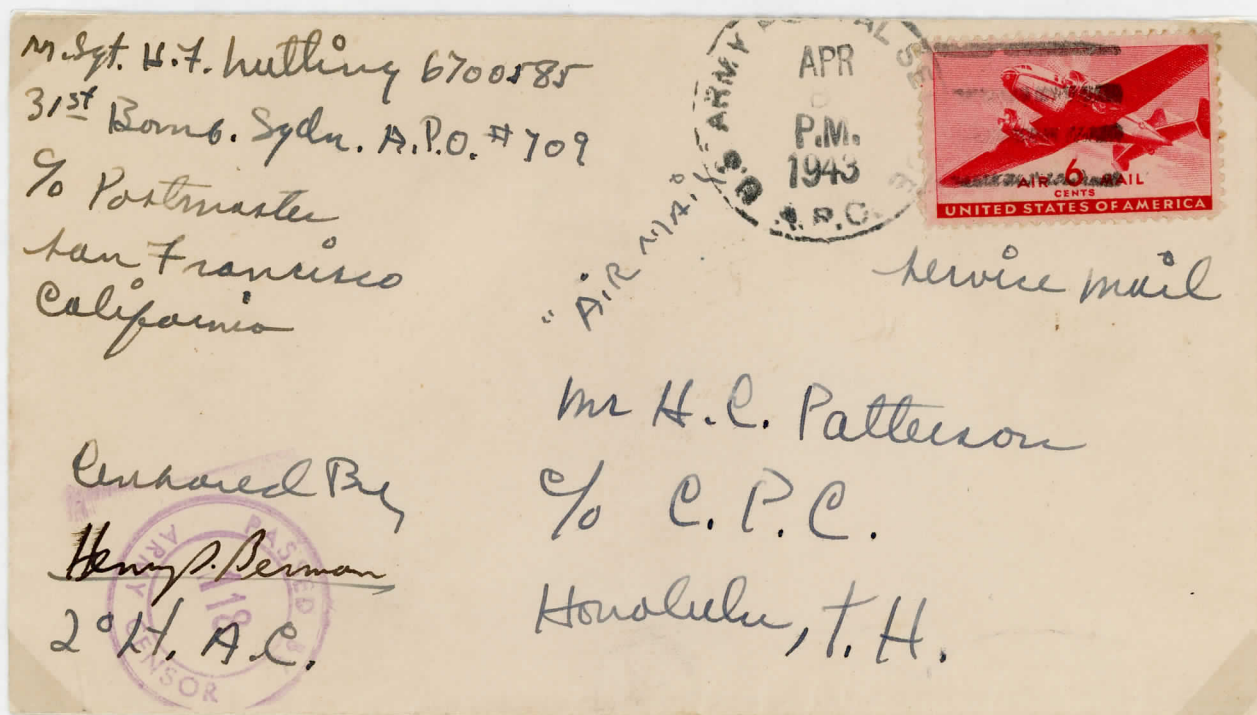 M.Sgt. H.F. Nutting 6700585
31st Bomb. Sqdn. A.P.O. #709
c/o Postmaster
San Francisco
California
U.S. ARMY POSTAL SE
APR
P.M.
1943
A.P.O.
AIR 6 MAIL
CENTS
UNITED STATES OF AMERICA
"AIR MAIL"
Service Mail
Mr H.C. Patterson
c/o C.P.C.
Honolulu, T.H.
Censored By
Henry S. Berman
2° Lt. A.C.
PASSED
ARMY CENSOR